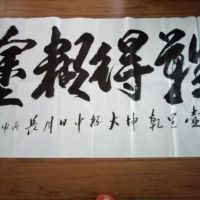 難得糊塗
乾坤大 中日月長 丙申